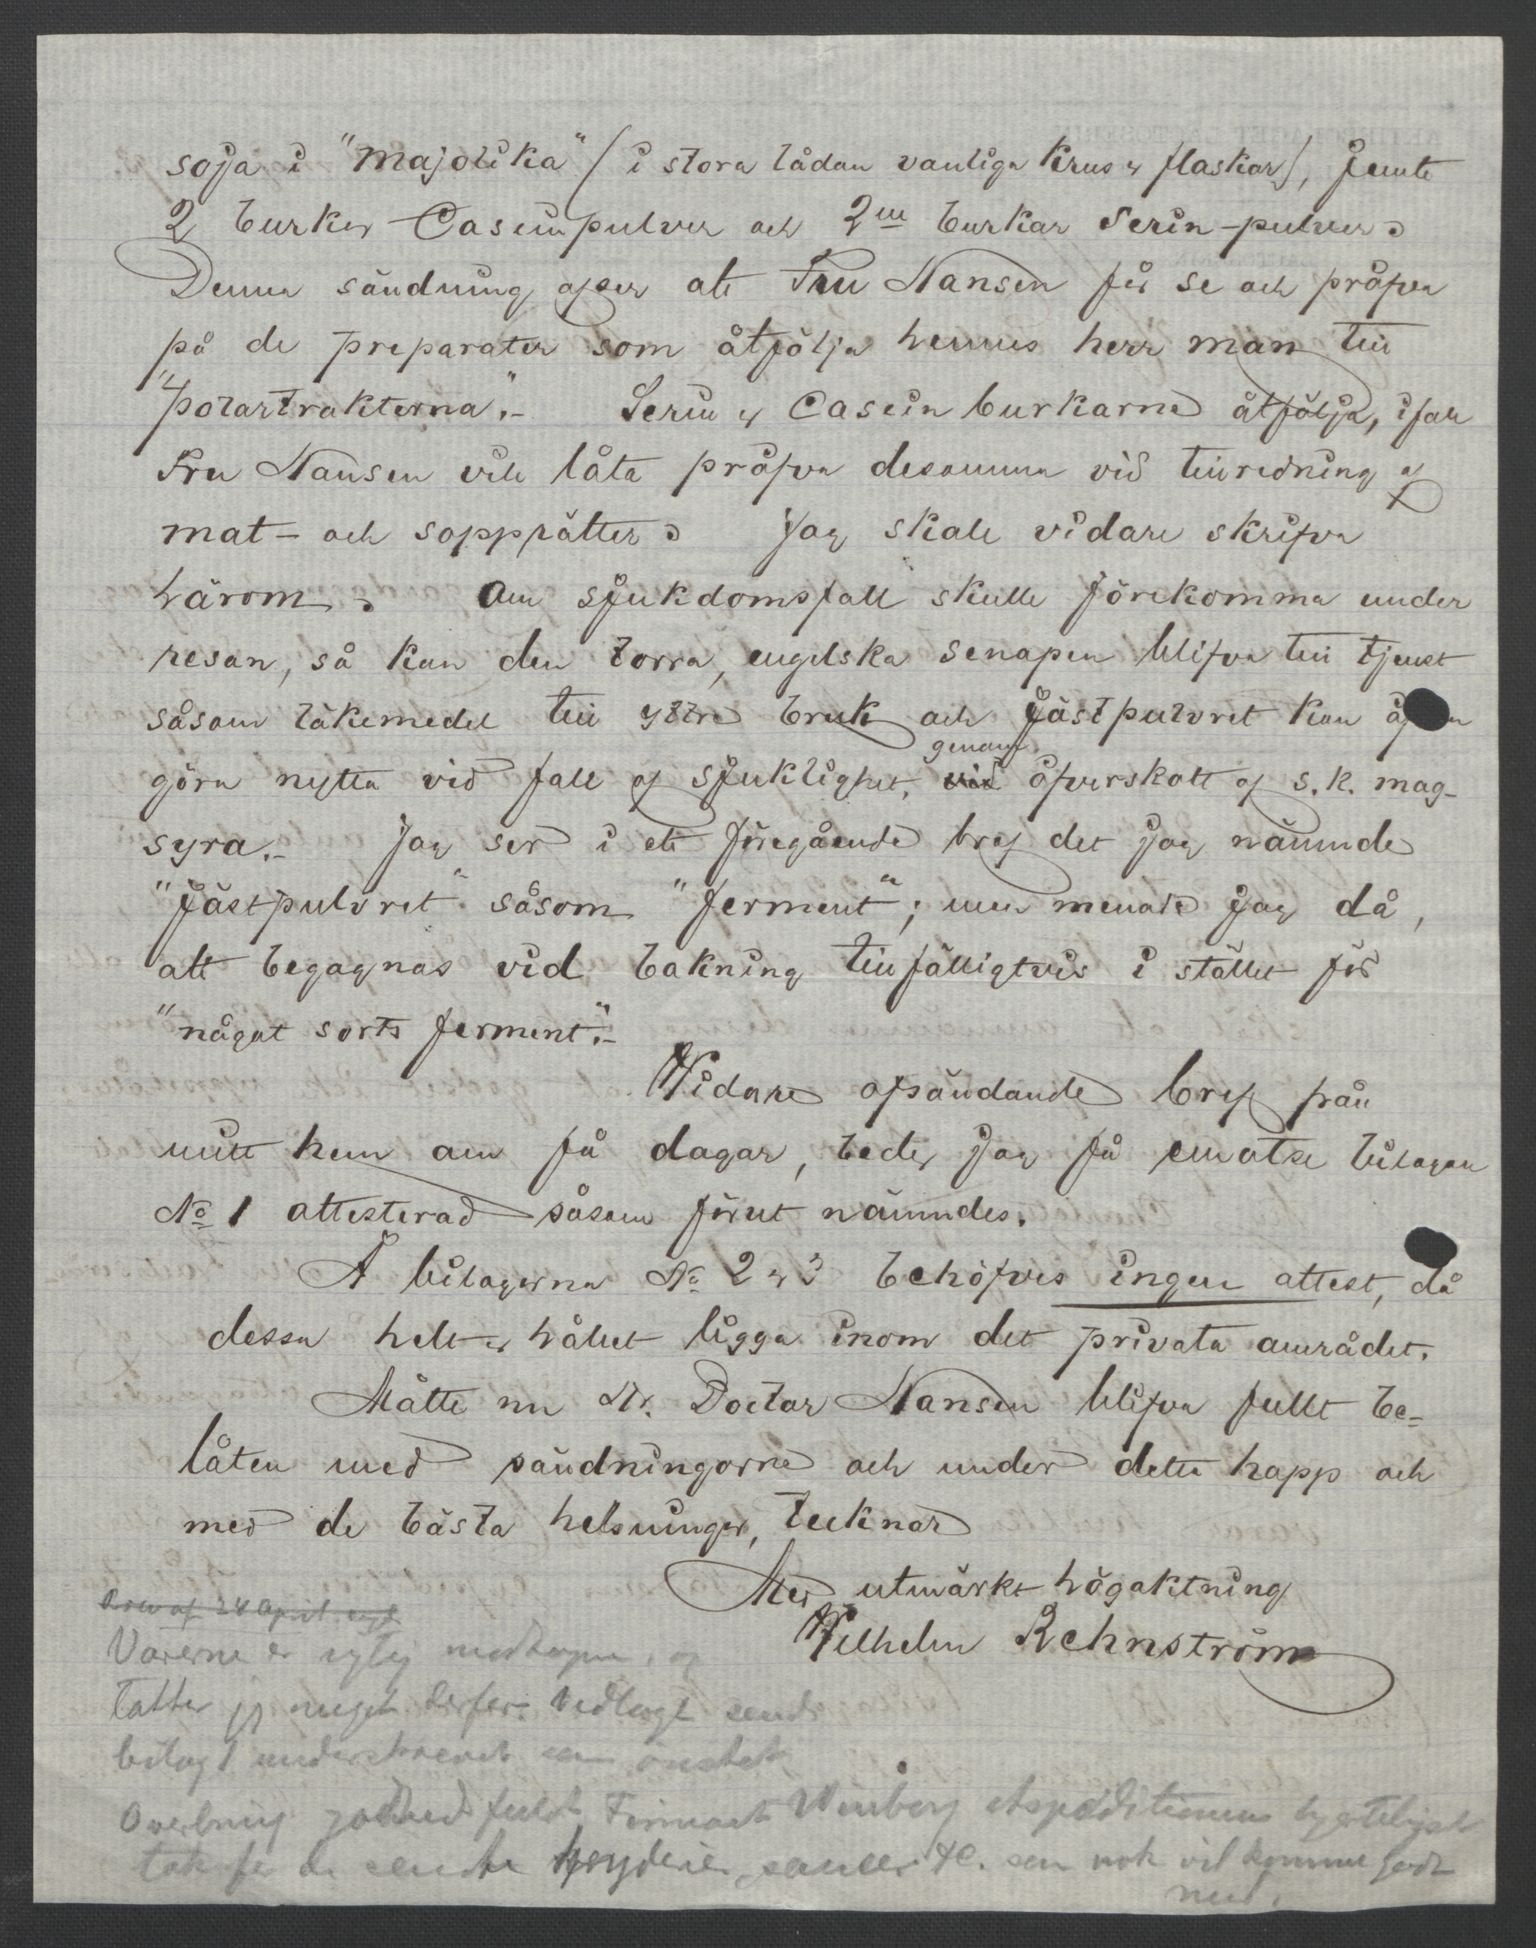 soja i "Majolika" (i stora lådan vanliga Krus & flaskor), jemte
2 burkar Caseinpulver och 2ne burkar Serin-pulver.
Denna sändning afser att Fru Nansen får se och pröfva
på de preparater som åtfölja hennes herr man till
"polartrakterna".- Serin & Casein burkarne åtfölja, ifall
Fru Nansen vill låta pröfva desamma vid tillredning af
mat- och sopprätter. Jag skall vidare skrifva
härom. Om sjukdomsfall skulle förekomma under
resan, så kan den torra, engelska senapen blifva till tjenst
såsom läkemedel till yttre bruk och Jästpulvret kan äfven
göra nytta vid fall af sjuklighet, genom öfverskott af s.k. mag-
syra.- Jag ser i ett föregående bref det jag nämnde
"Jästpulvret" såsom "ferment"; men menade jag då,
att begagnas vid bakning tillfälligtvis i stället för
"något sorts ferment".-
Vidare afsändande bref från
mitt hem om få dagar, beder jag få emotse bilagan
No 1 attesterad såsom förut nämndes.
Å bilagorna No 2 & 3 behöfves ingen attest, då
dessa helt & hållet ligga inom det privata området.
Måtte nu Hr. Doctor Nansen blifva fullt be-
låten med sändningarne och under detta hopp och
med de bästa helsningar, tecknar
Med utmärkt högaktning
Vilhelm Rehnström
Brev af 24 April
Varerne er rgtig modtagne, og
takker jeg meget derfor. Vedlagt sendes
bilag 1 underskrevet som önsket.
Overbring Firmaet Winborg Expeditionens hjerteligste
tak for de sendte krydderier, saucer &c. som nok vil komme godt
med.